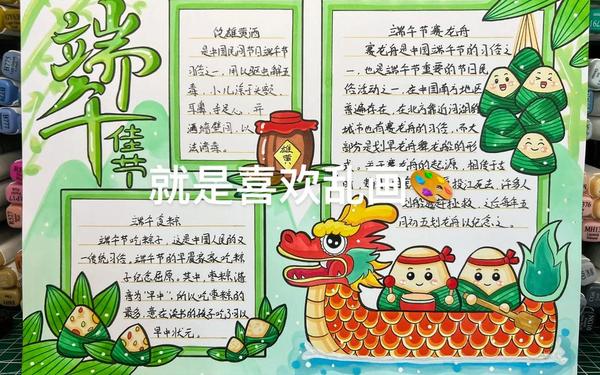 端午
佳节
饮雄黄酒
是中国民间节日端午节
习俗之一，用以驱虫解五
毒，小儿涂于头额、
耳鼻、手足心，并
洒墙壁间，以
法诸毒。
雄黄
端午节赛龙舟
赛龙舟是中国端午节的习俗之
一，也是端午节重要的节日民
俗活动之一，在中国南方地区
普遍存在，在北方靠近河湖的
城市也有赛龙舟的习俗，而大
部分是划旱龙舟舞龙船的形
式。关于赛龙舟的起源，
投江死去，许多人
划船追赶拯救，
五划龙舟以纪念之。
就是喜欢乱画🎨
端午食粽
端午节吃粽子，这是中国人民的又
一传统习俗，端午节的早晨家家吃粽
子纪念屈原，
为"早中"，所以吃枣粽的
最多，意在读书的孩子吃了可以
早中状元。